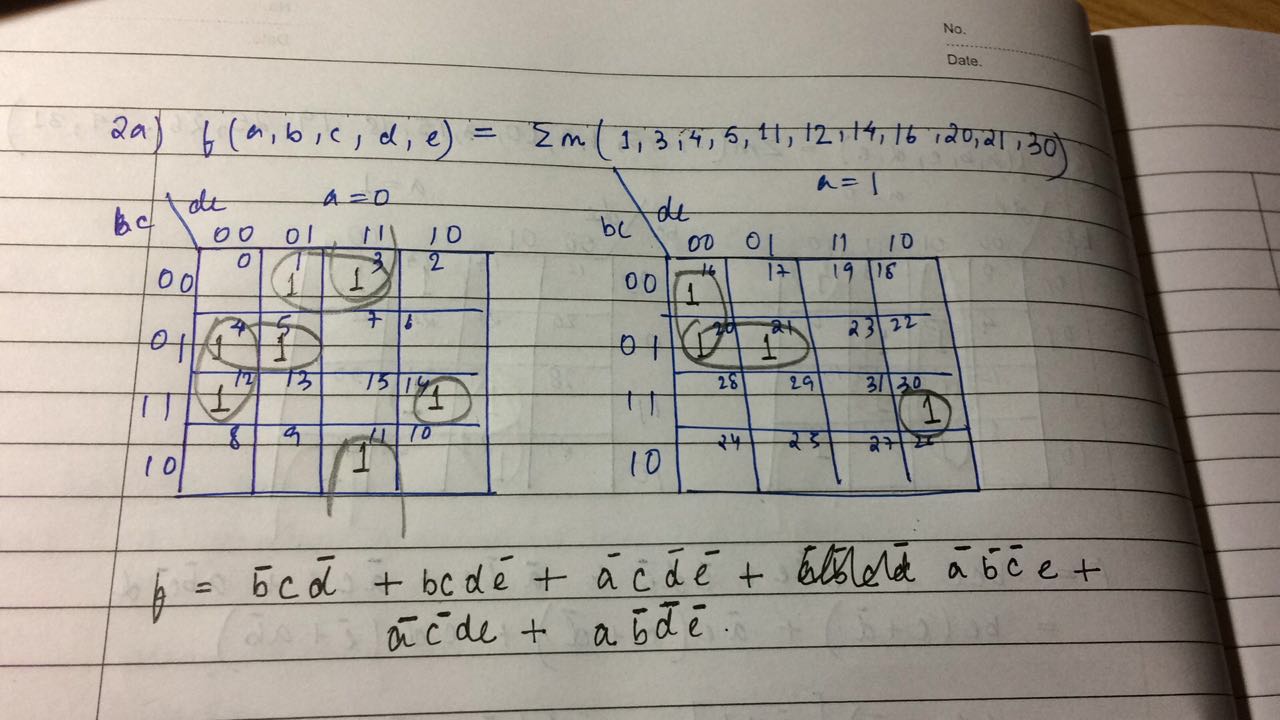 No.
Date.
2a) f(a,b,c,d,e) = Σm(1,3,4,5,11,12,14,16,20,21,30)
bc de a=0
00 01 11 10
00 0 1 1 1 3 2
01 1 4 1 5 7 6
11 1 12 13 15 14 1
10 8 9 1 11 10
bc de a=1
00 01 11 10
00 1 16 17 19 18
01 1 20 1 21 23 22
11 28 29 31 30 1
10 24 25 27
f = b̄cd̄ + bcdē + āc̄d̄ē + āb̄c̄e +
āc̄de + ab̄d̄ē.